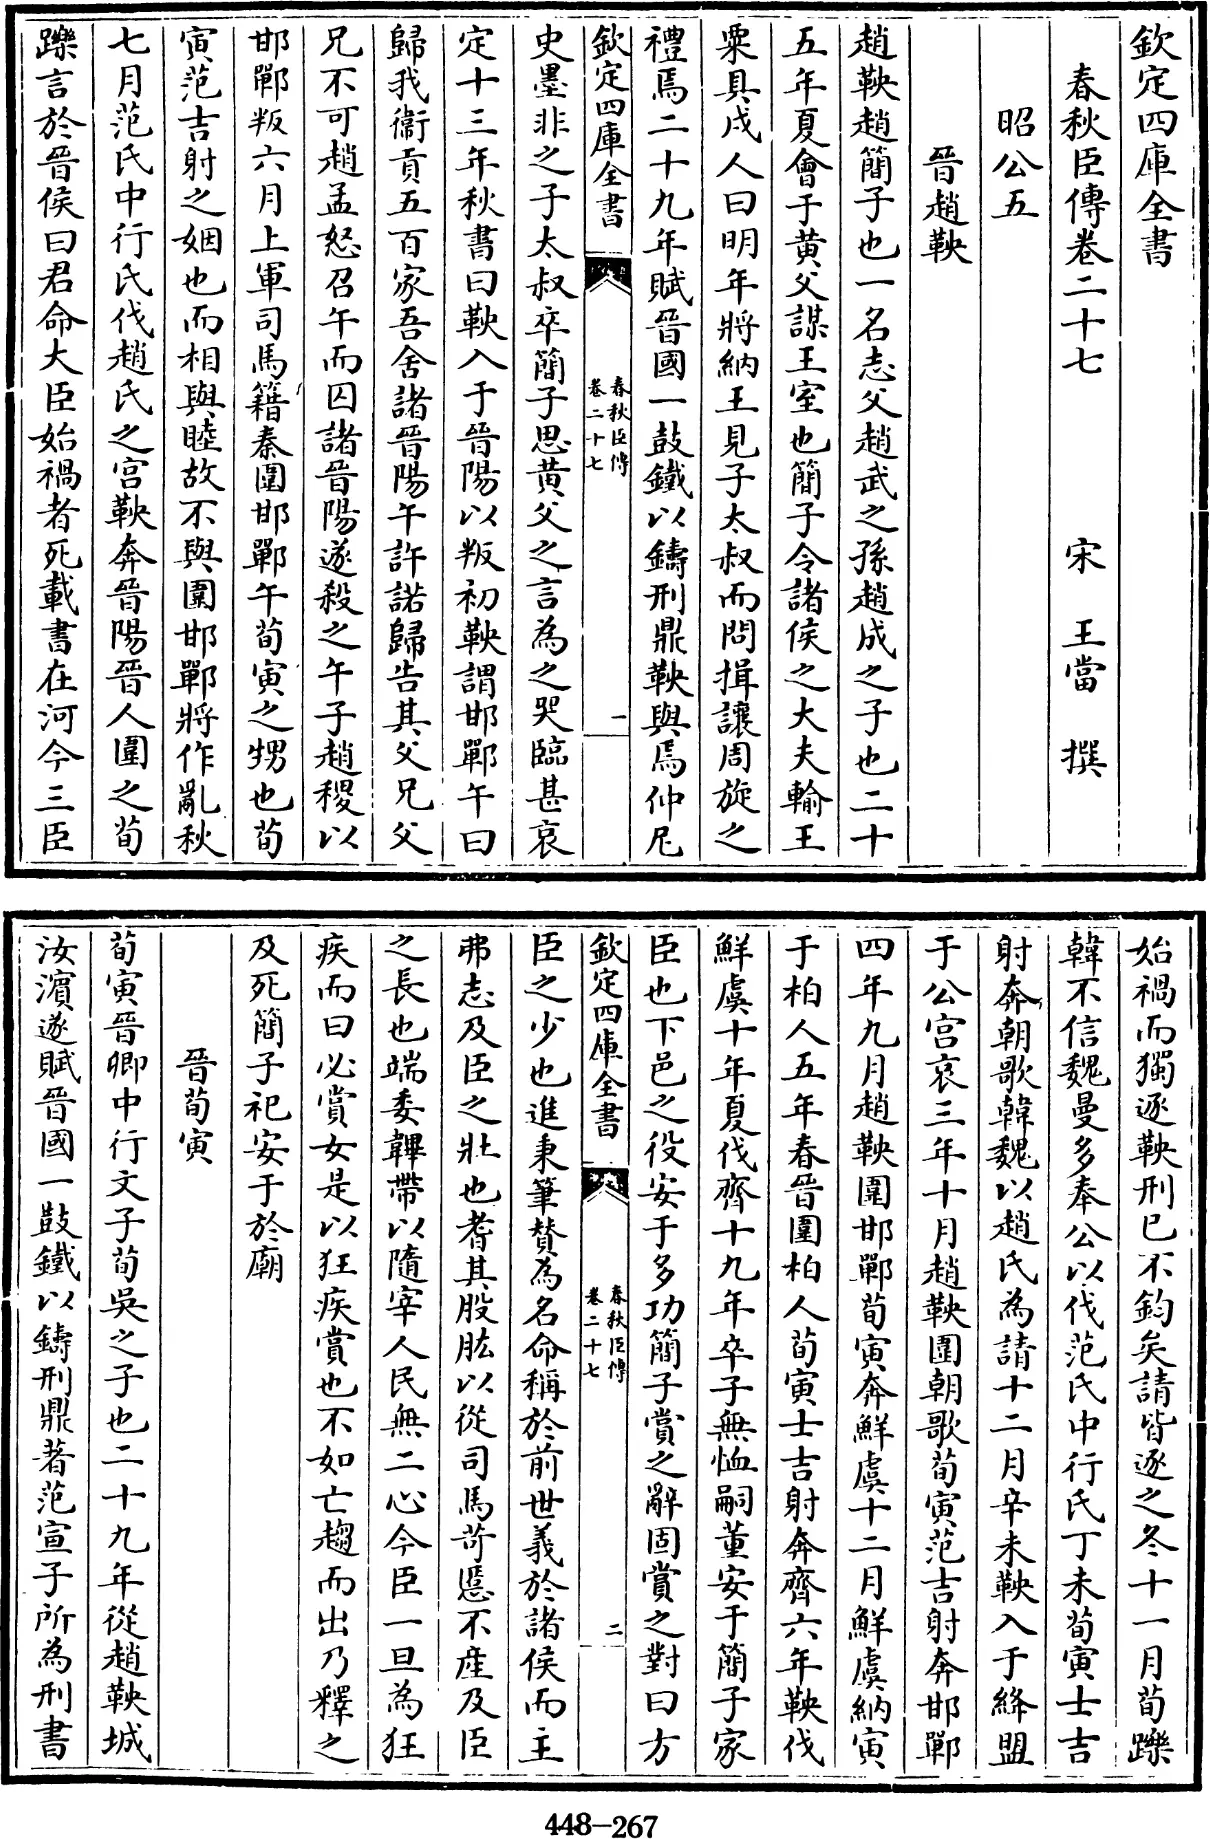 欽定四庫全書
春秋臣傳卷二十七
宋 王當 撰
昭公五
晉趙鞅
趙鞅趙簡子也一名志父趙武之孫趙成之子也二十
五年夏會于黄父謀王室也簡子令諸侯之大夫輸王
粟具戍人曰明年將納王見子太叔而問揖讓周旋之
禮焉二十九年賦晉國一鼓鐵以鑄刑鼎鞅與焉仲尼
欽定四庫全書
春秋臣傳
卷二十七
一
史墨非之子太叔卒簡子思黄父之言為之哭臨甚哀
定十三年秋書曰鞅入于晉陽以叛初鞅謂邯鄲午曰
歸我衞貢五百家吾舍諸晉陽午許諾歸告其父兄父
兄不可趙孟怒召午而囚諸晉陽遂殺之午子趙稷以
邯鄲叛六月上軍司馬籍秦圍邯鄲午荀寅之甥也荀
寅范吉射之姻也而相與睦故不與圍邯鄲將作亂秋
七月范氏中行氏伐趙氏之宫鞅奔晉陽晉人圍之荀
躒言於晉侯曰君命大臣始禍者死載書在河今三臣
始禍而獨逐鞅刑已不鈞矣請皆逐之冬十一月荀躒
韓不信魏曼多奉公以伐范氏中行氏丁未荀寅士吉
射奔朝歌韓魏以趙氏為請十二月辛未鞅入于絳盟
于公宫哀三年十月趙鞅圍朝歌荀寅范吉射奔邯鄲
四年九月趙鞅圍邯鄲荀寅奔鮮虞十二月鮮虞納寅
于柏人五年春晉圍柏人荀寅士吉射奔齊六年鞅伐
鮮虞十年夏伐齊十九年卒子無恤嗣董安于簡子家
臣也下邑之役安于多功簡子賞之辭固賞之對曰方
欽定四庫全書
春秋臣傳
卷二十七
二
臣之少也進秉筆贊為名命稱於前世義於諸侯而主
弗志及臣之壯也耆其股肱以從司馬苛慝不産及臣
之長也端委韠帶以隨宰人民無二心今臣一旦為狂
疾而曰必賞女是以狂疾賞也不如亡趨而出乃釋之
及死簡子祀安于於廟
晉荀寅
荀寅晉卿中行文子荀吳之子也二十九年從趙鞅城
汝濱遂賦晉國一鼓鐵以鑄刑鼎著范宣子所為刑書
448-267